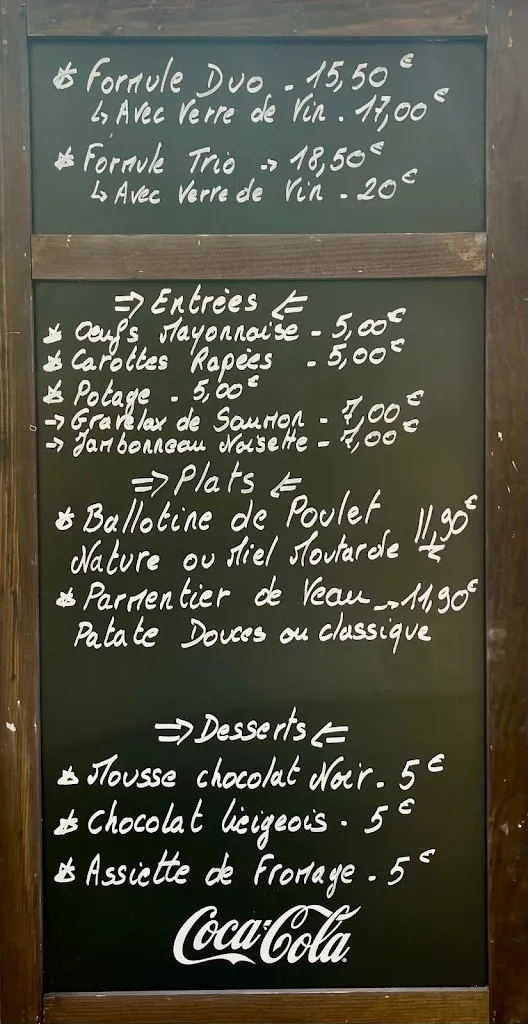 * Formule Duo - 15,50€
↳ Avec Verre de Vin - 17,00€
* Formule Trio -> 18,50€
↳ Avec Verre de Vin - 20€
=> Entrées <=
* Oeufs Mayonnaise - 5,00€
* Carottes Rapées - 5,00€
* Potage - 5,00€
-> Gravelax de Saumon - 7,00€
-> Jambonneau Noisette - 7,00€
=> Plats <=
* Ballotine de Poulet 11,90€
Nature ou Miel Moutarde
* Parmentier de Veau -> 11,90€
Patate Douces ou classique
=> Desserts <=
* Mousse chocolat Noir - 5€
* Chocolat lieigeois - 5€
* Assiette de Fromage - 5€
Coca-Cola